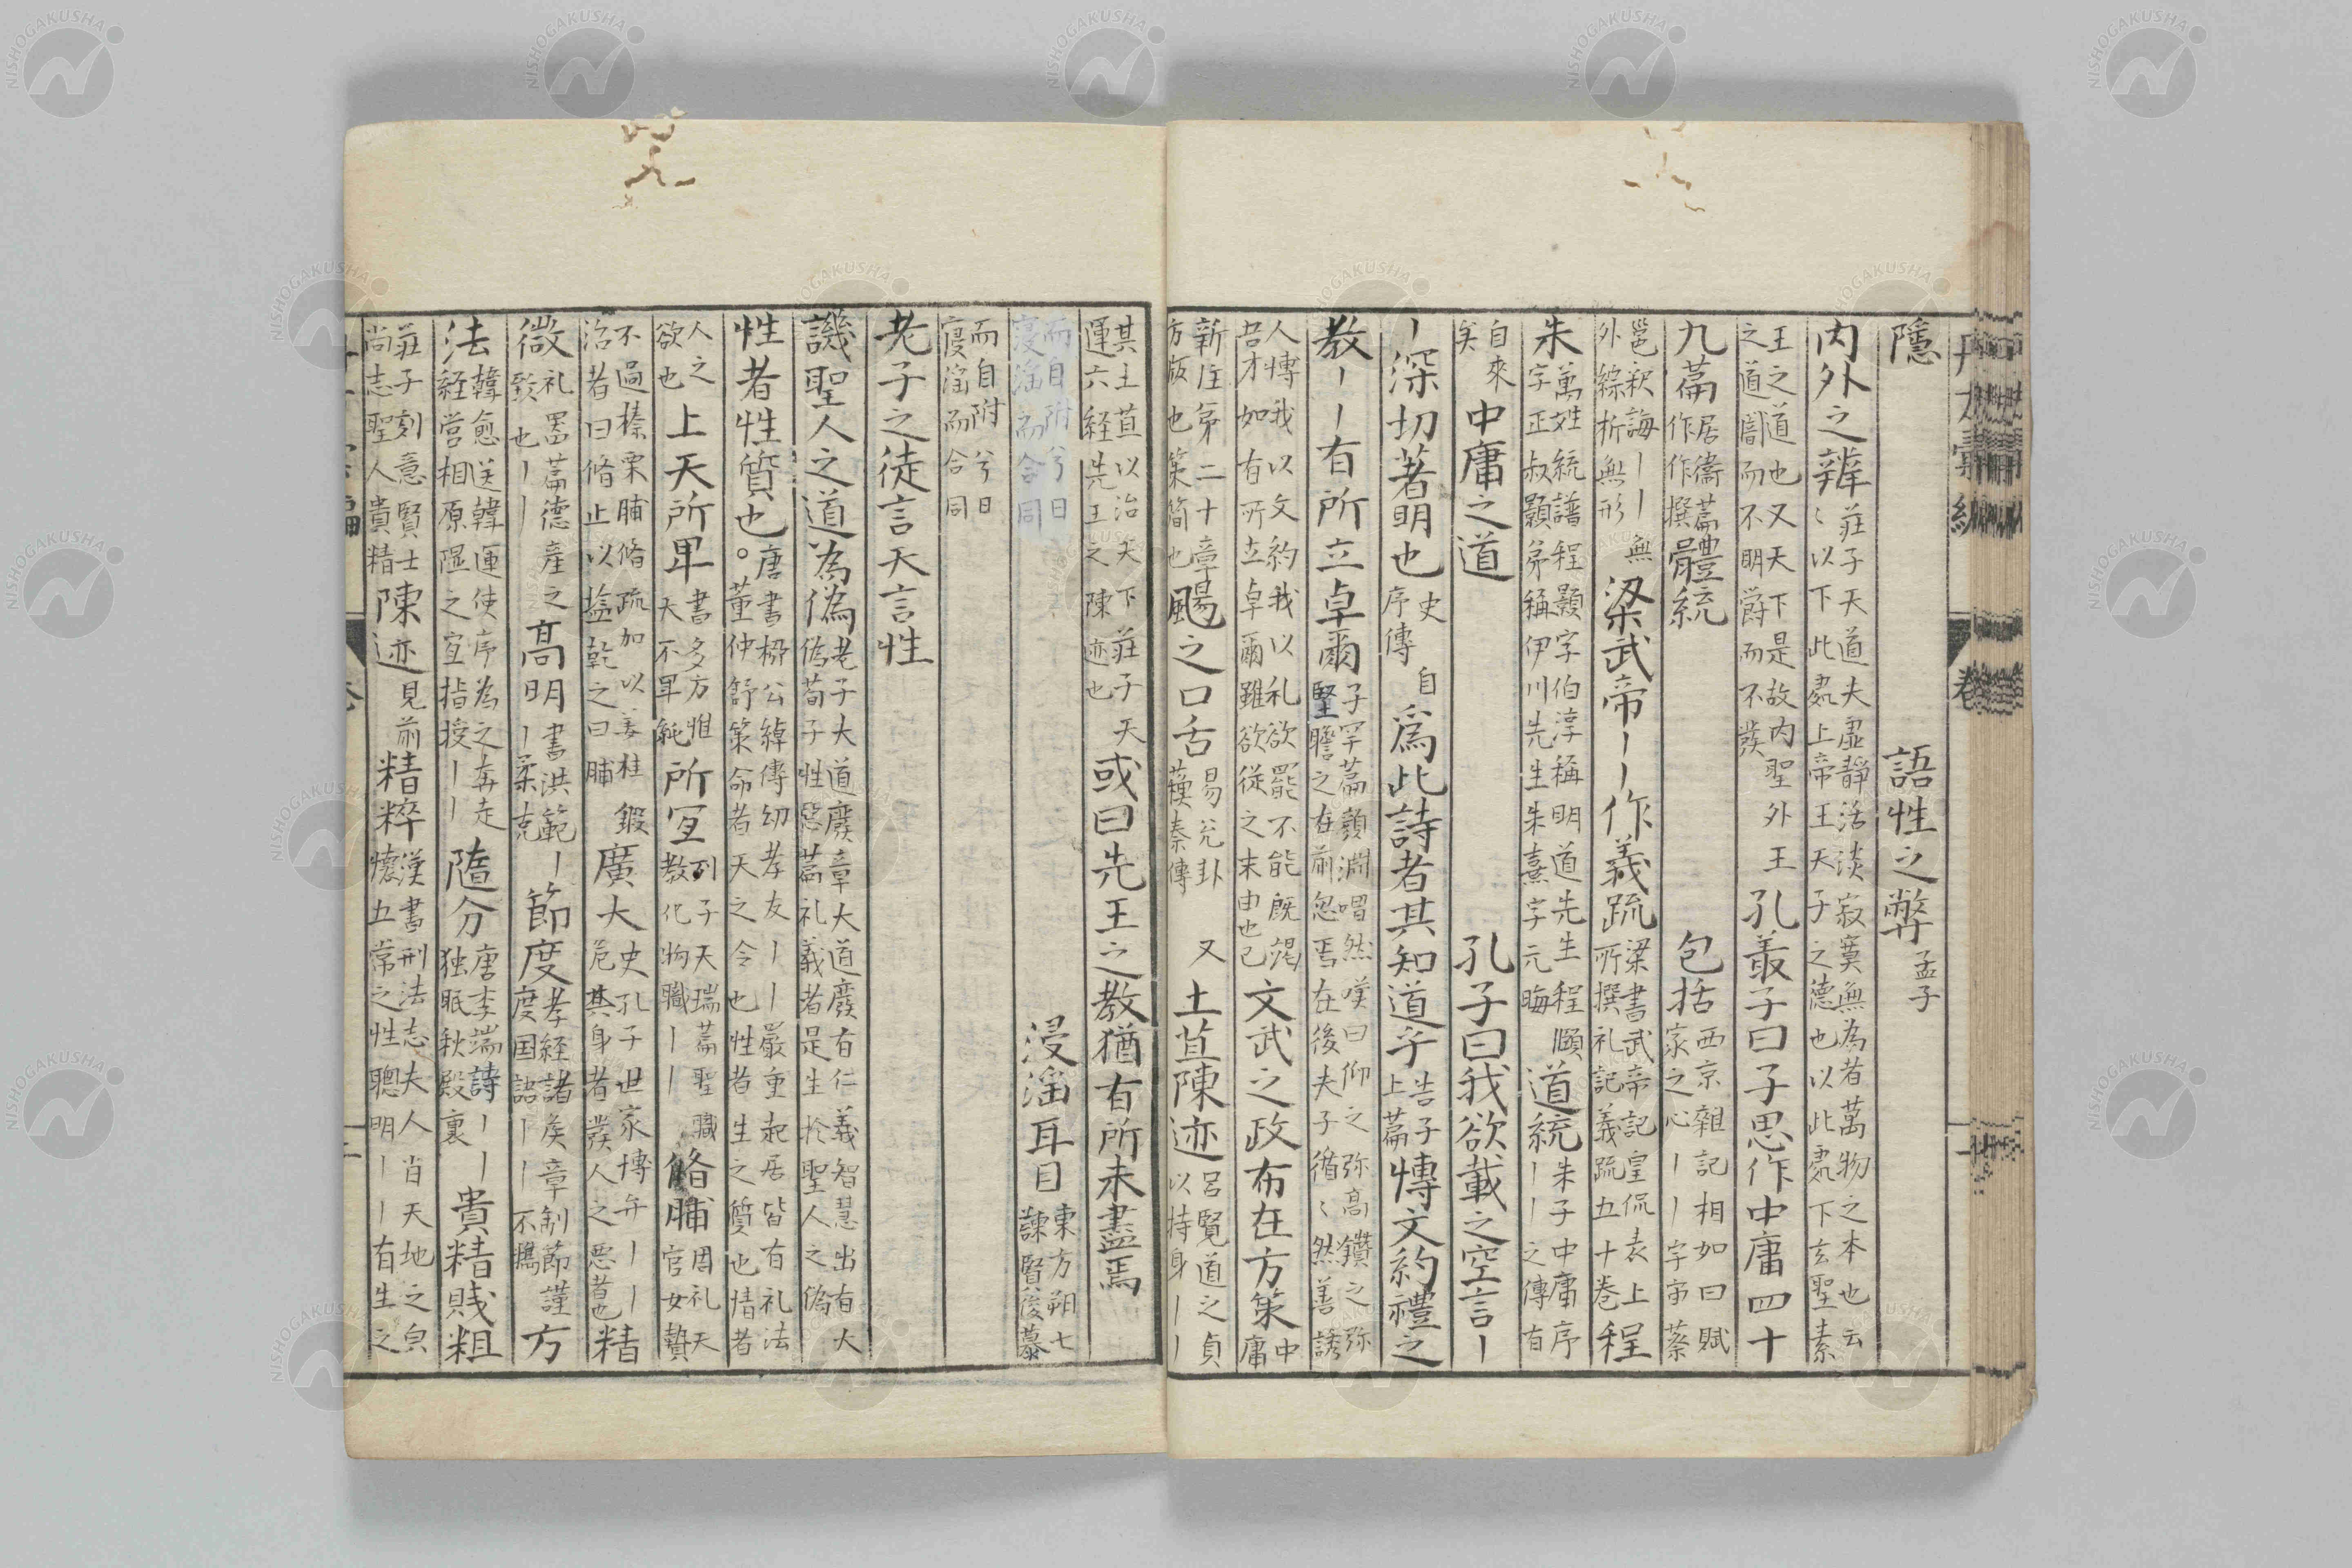 隱　語性之弊 孟子
内外之辨 莊子天道夫虛靜活淡寂寞無為者萬物之本也云
〻以下此處上帝王天子之德也以此處下玄聖素
王之道也又天下是故内聖外王
之道闇而不明欝而不發 孔叢子曰子思作中庸四十
九篇 居衞篇
作作撰 體統　包括 西京雜記相如曰賦
家之心｜｜宇宙蔡
邕釈誨｜｜無
外綜析無形 梁武帝｜｜作義疏 梁書武帝記皇侃表上
所撰礼記義疏五十巻 程
朱 萬姓統譜程顥字伯淳稱明道先生程頤
字正叔顥弟稱伊川先生朱熹字元晦 道統 朱子中庸序
｜｜之傳有
自來
矣 中庸之道　孔子曰我欲載之空言｜
｜深切著明也 史自
序傳 為此詩者其知道乎 告子
上篇 博文約禮之
教｜｜有所立卓爾 子罕篇顏淵喟然嘆曰仰之弥高鑽之弥
堅瞻之在前忽焉在後夫子循〻然善誘
人博我以文約我以礼欲罷不能既竭
吾才如有所立卓爾雖欲従之末由也已 文武之政布在方策 中
庸
新注第二十章
方版也策簡也 颺之口舌 易兌卦
蘓秦傳 又 土苴陳迹 呂覽道之貞
以持身｜｜
其土苴以治天下莊子天
運六経先王之陳迹也 或曰先王之教猶有所未盡焉
而自附兮日
寖滛而合同 浸滛耳目 東方朔七
諫賢俊慕
而自附兮日
寖滛而合同
老子之徒言天言性
譏聖人之道為偽 老子大道廢章大道廢有仁義智慧出有大
偽荀子性惡篇礼義者是生於聖人之偽
性者性質也。 唐書柳公綽傳幼孝友｜｜嚴重起居皆有礼法
董仲舒策命者天之令也性者生之質也情者
人之
欲也 上天所畀 書多方惟
天不畀純 所宜 列子天瑞篇聖職
教化物職｜｜ 脩脯 周礼天
官女贄
不過榛栗脯脩疏加以姜桂鍛
治者曰脩止以塩乾之曰脯 廣大 史孔子世家博弁｜｜
危其身者發人之悪者也 精
微 礼噐篇德産之
致也｜｜ 高明 書洪範｜
｜柔克 節度 孝経諸矦章制節謹
度国語｜｜不攜 方
法 韓愈送韓運使序為之奔走
経営相原隰之宜指授｜｜ 隨分 唐李端詩｜｜
独眠秋殿裏 貴精賎粗
莊子刻意賢士
尚志聖人貴精 陳迹 見前 精粹 漢書刑法志夫人肖天地之皃
懐五常之性聰明｜｜有生之